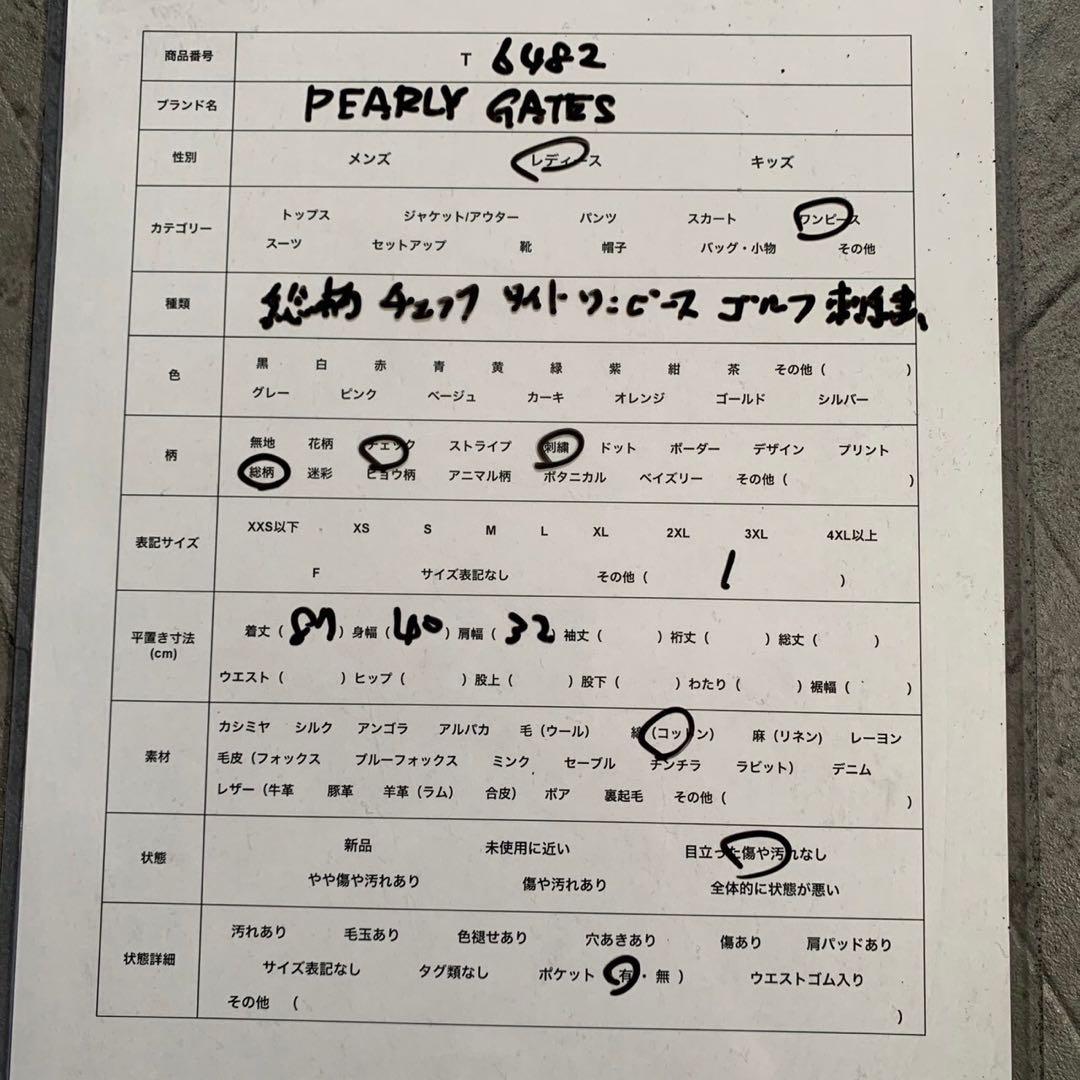 商品番号 T 6482
ブランド名 PEARLY GATES
性別 メンズ レディース キッズ
カテゴリー トップス ジャケット/アウター パンツ スカート ワンピース
スーツ セットアップ 靴 帽子 バッグ・小物 その他
種類 総柄 チェック タイト ワンピース ゴルフ 刺繍
色 黒 白 赤 青 黄 緑 紫 紺 茶 その他（ ）
グレー ピンク ベージュ カーキ オレンジ ゴールド シルバー
柄 無地 花柄 チェック ストライプ 刺繍 ドット ボーダー デザイン プリント
総柄 迷彩 ヒョウ柄 アニマル柄 ボタニカル ペイズリー その他（ ）
表記サイズ XXS以下 XS S M L XL 2XL 3XL 4XL以上
F サイズ表記なし その他（ 1 ）
平置き寸法 着丈（ ）身幅（ 40 ）肩幅（ 32 袖丈（ ）裄丈（ ）総丈（ ）
(cm) ウエスト（ ）ヒップ（ ）股上（ ）股下（ ）わたり（ ）裾幅（ ）
素材 カシミヤ シルク アンゴラ アルパカ 毛（ウール） 綿（コットン） 麻（リネン） レーヨン
毛皮（フォックス ブルーフォックス ミンク セーブル チンチラ ラビット） デニム
レザー（牛革 豚革 羊革（ラム） 合皮） ボア 裏起毛 その他（ ）
状態 新品 未使用に近い 目立った傷や汚れなし
やや傷や汚れあり 傷や汚れあり 全体的に状態が悪い
状態詳細 汚れあり 毛玉あり 色褪せあり 穴あきあり 傷あり 肩パッドあり
サイズ表記なし タグ類なし ポケット（有・無） ウエストゴム入り
その他 （ ）